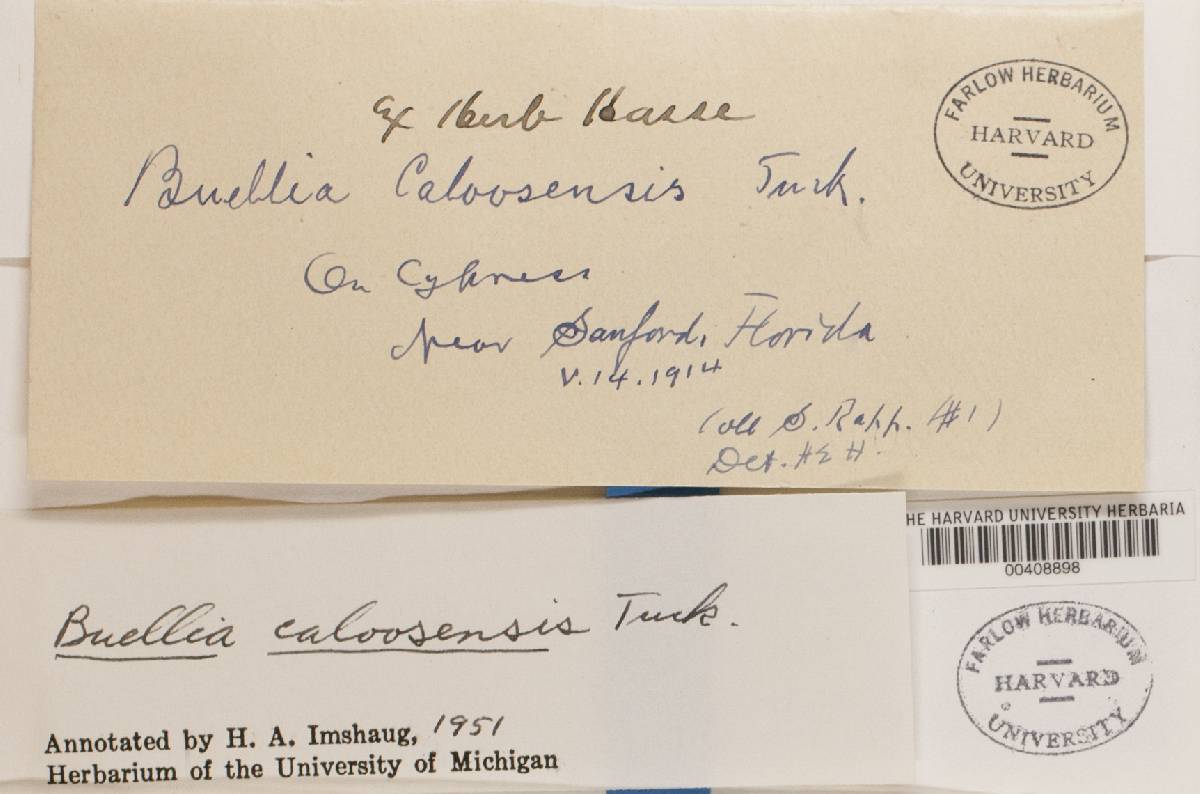 Ex Herb Hasse
Buellia Caloosensis Tuck.
On Cypress
Near Sanford, Florida
V.14.1914
Coll S. Rapp. (#1)
Det. H E H.
FARLOW HERBARIUM
HARVARD
UNIVERSITY
Buellia caloosensis Tuck.
Annotated by H. A. Imshaug, 1951
Herbarium of the University of Michigan
HE HARVARD UNIVERSITY HERBARIA
00408898
FARLOW HERBARIUM
HARVARD
UNIVERSITY